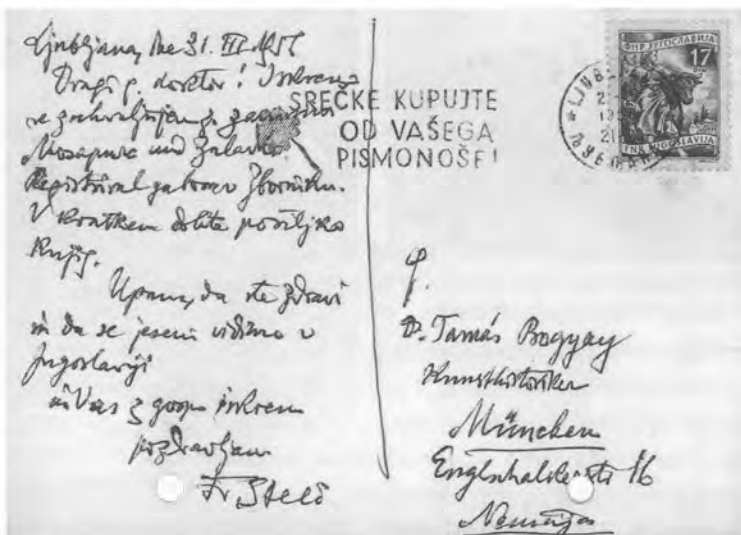 Ljubljana, dne 31. III.
Dragi g. doktor! Iskreno
se zahvaljujem g. za
Mosapurc und Zalavár.
Registriral ga bom v Zborniku.
V kratkem dobite pošiljko
knjig.
Upam, da ste zdravi
in da se jeseni vidimo v
Jugoslaviji
in Vas z gospo iskreno
pozdravljam
Fr. Stelè
SREČKE KUPUJTE
OD VAŠEGA
PISMONOŠE!
ФНР ЈУГОСЛАВИЈА
17
FNR JUGOSLAVIJA
G.
Dr. Tamás Bogyay
Kunsthistoriker
München
16
Nemčija